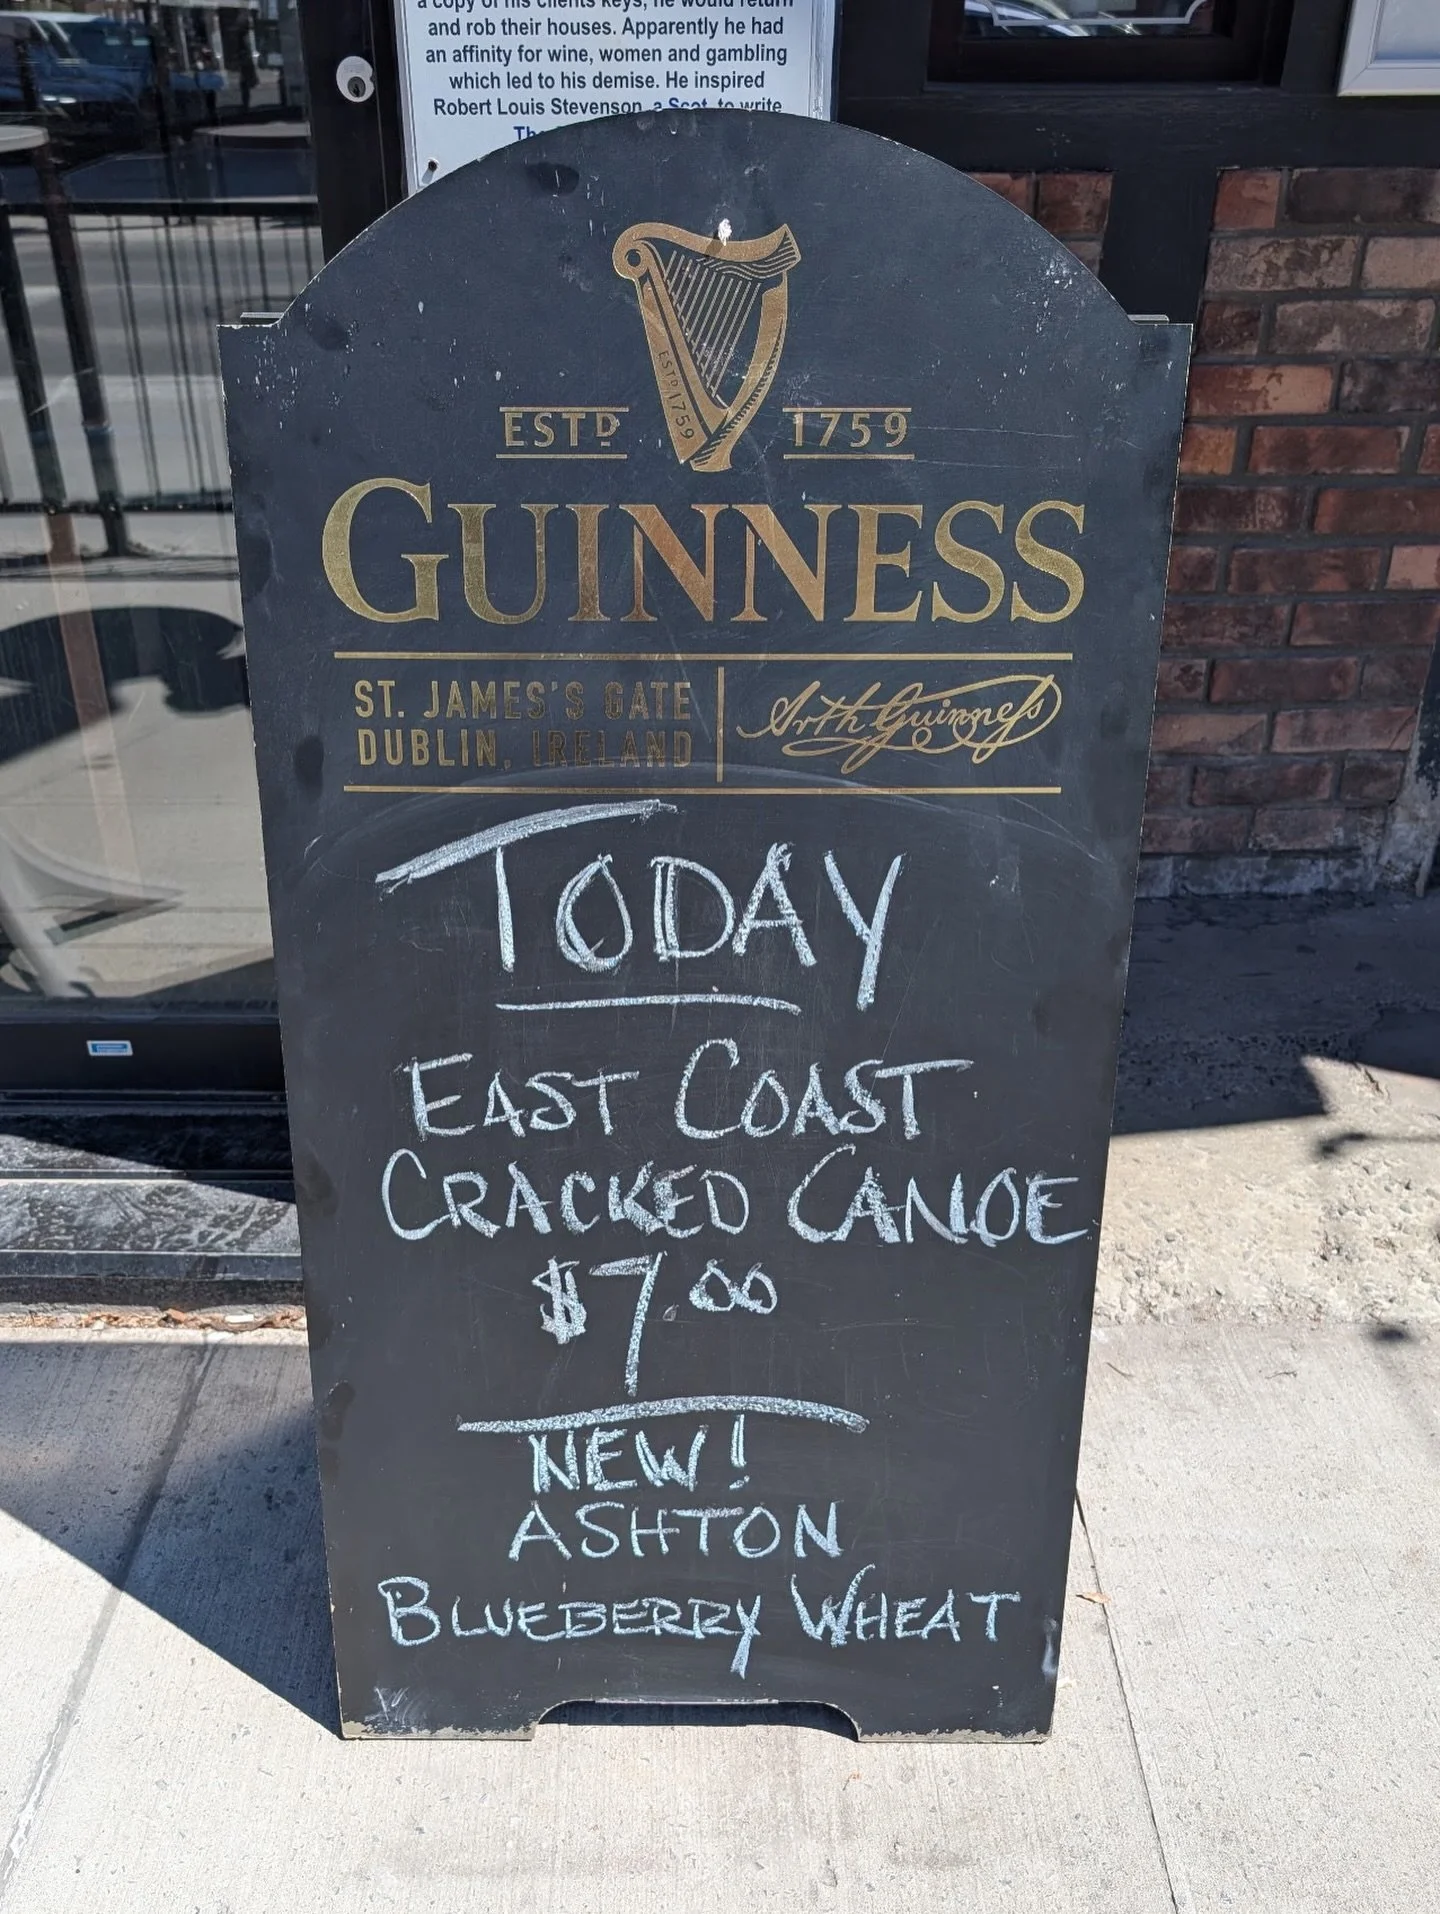 a copy of his clients keys, he would return
and rob their houses. Apparently he had
an affinity for wine, women and gambling
which led to his demise. He inspired
Robert Louis Stevenson, a Scot, to write
ESTD 1759
ESTD 1759
GUINNESS
ST. JAMES'S GATE
DUBLIN, IRELAND
Arth Guinness
TODAY
EAST COAST
CRACKED CANOE
$7.00
NEW!
ASHTON
BLUEBERRY WHEAT